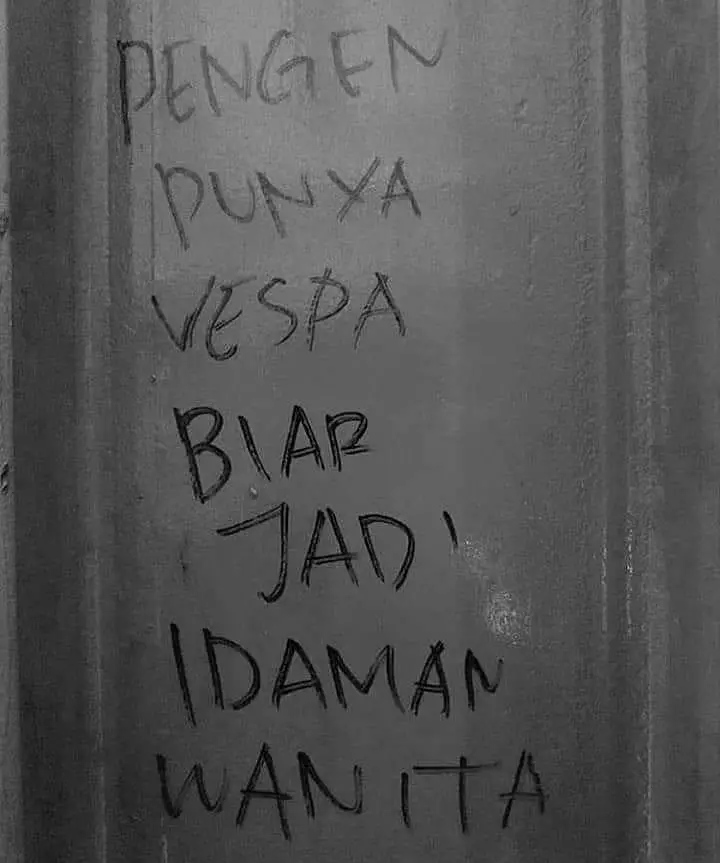 PENGEN
PUNYA
VESPA
BIAR
JADI
IDAMAN
WANITA